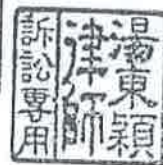 湯東穎
律師
訴訟專用